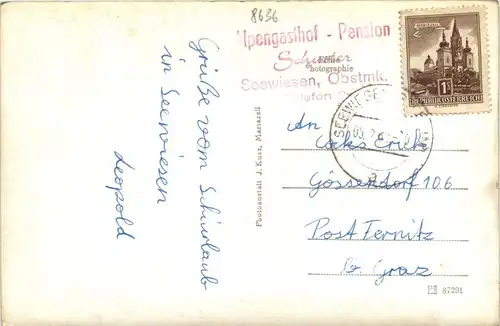 8636
Alpengasthof - Pension
Schuster
Echte
Photographie
Seewiesen, Obstmk.
Telefon
1S
REPUBLIK ÖSTERREICH
SEEWIESEN
Grüße vom Schiurlaub
in Seewiesen
Leopold
Photoanstalt J. Kuss, Mariazell
An
Erich
Gössendorf 106
Post Fernitz
b. Graz
87291